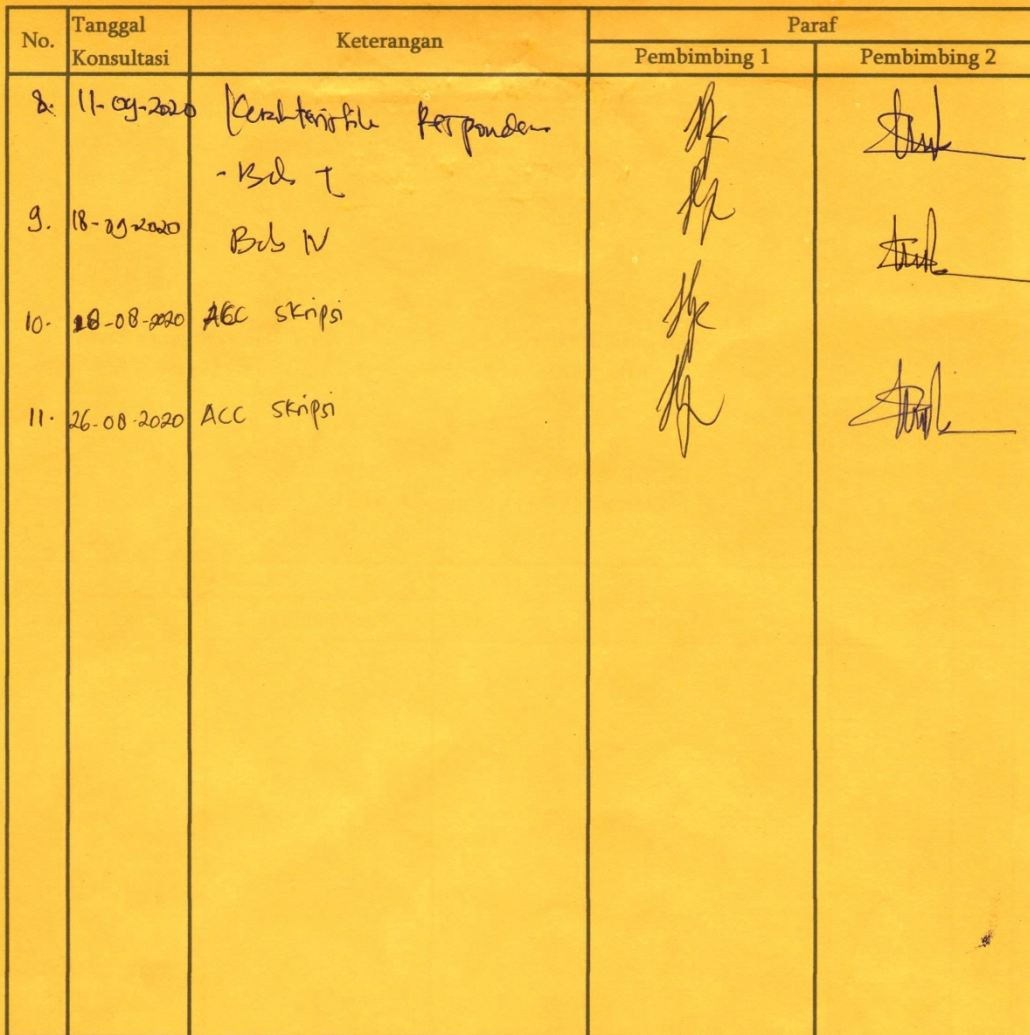 No. Tanggal Konsultasi Keterangan Paraf
Pembimbing 1 Pembimbing 2
8. 11-09-2020 Karakteristik Responden
- Bab I
9. 18-09-2020 Bab IV
10. 18-08-2020 ACC skripsi
11. 26-08-2020 ACC skripsi